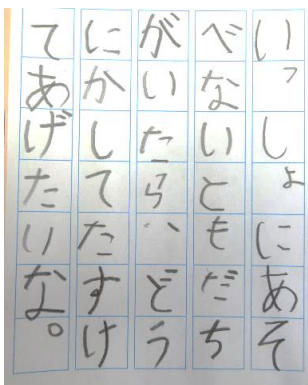 いっしょにあそ
べないともだち
がいたら、どう
にかしてたすけ
てあげたいな。